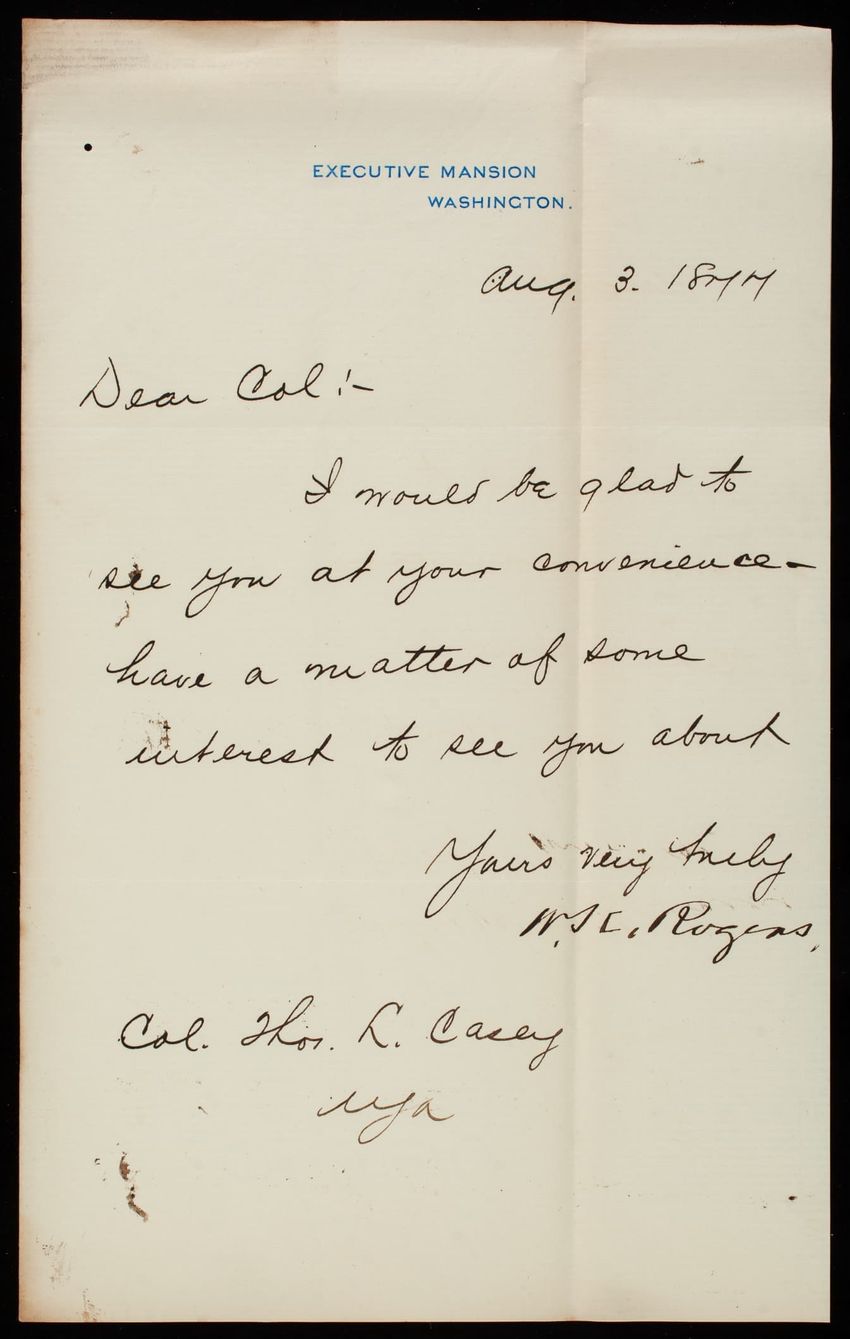 EXECUTIVE MANSION
WASHINGTON.
Aug. 3. 1877
Dear Col :-
I would be glad to
see you at your convenience -
have a matter of some
interest to see you about
Yours very truly
W. K. Rogers,
Col. Thos. L. Casey